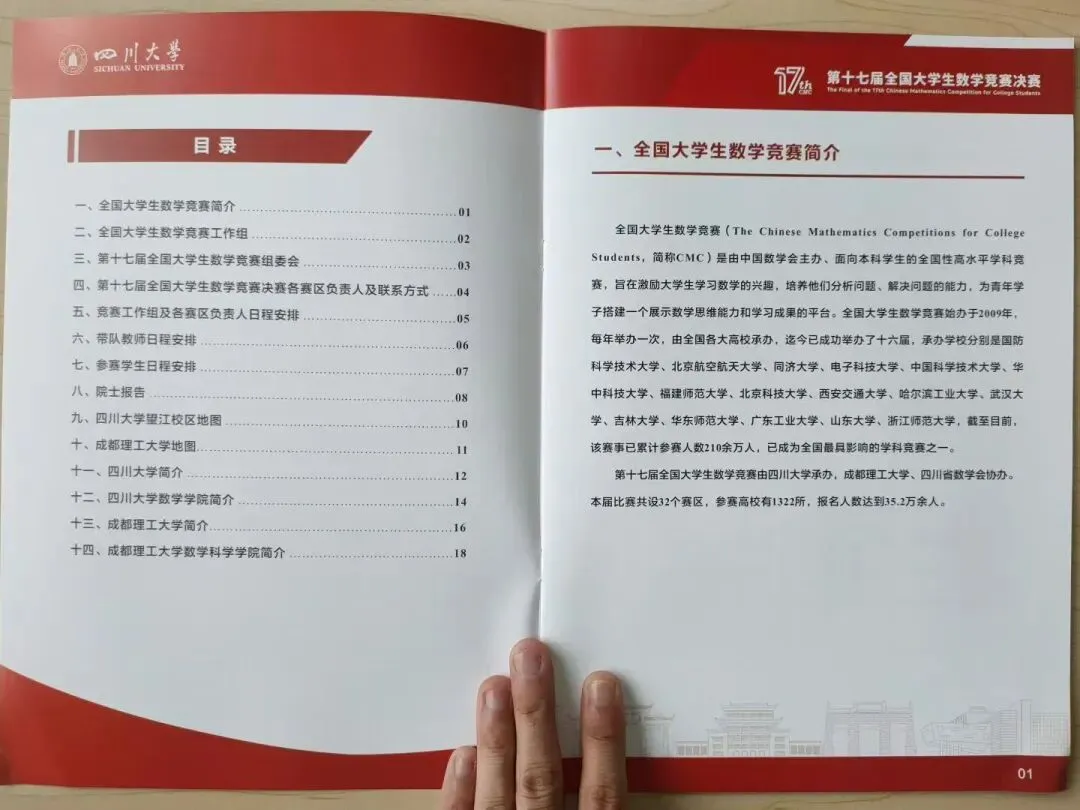 四川大学
SICHUAN UNIVERSITY
目录
一、全国大学生数学竞赛简介 01
二、全国大学生数学竞赛工作组 02
三、第十七届全国大学生数学竞赛组委会 03
四、第十七届全国大学生数学竞赛决赛各赛区负责人及联系方式 04
五、竞赛工作组及各赛区负责人日程安排 05
六、带队教师日程安排 06
七、参赛学生日程安排 07
八、院士报告 08
九、四川大学望江校区地图 10
十、成都理工大学地图 11
十一、四川大学简介 12
十二、四川大学数学学院简介 14
十三、成都理工大学简介 16
十四、成都理工大学数学科学学院简介 18
17th
CMC
第十七届全国大学生数学竞赛决赛
The Final of the 17th Chinese Mathematics Competition for College Students
一、全国大学生数学竞赛简介
全国大学生数学竞赛（The Chinese Mathematics Competitions for College
Students，简称CMC）是由中国数学会主办、面向本科学生的全国性高水平学科竞
赛，旨在激励大学生学习数学的兴趣，培养他们分析问题、解决问题的能力，为青年学
子搭建一个展示数学思维能力和学习成果的平台。全国大学生数学竞赛始办于2009年，
每年举办一次，由全国各大高校承办，迄今已成功举办了十六届，承办学校分别是国防
科学技术大学、北京航空航天大学、同济大学、电子科技大学、中国科学技术大学、华
中科技大学、福建师范大学、北京科技大学、西安交通大学、哈尔滨工业大学、武汉大
学、吉林大学、华东师范大学、广东工业大学、山东大学、浙江师范大学，截至目前，
该赛事已累计参赛人数210余万人，已成为全国最具影响的学科竞赛之一。
第十七届全国大学生数学竞赛由四川大学承办，成都理工大学、四川省数学会协办。
本届比赛共设32个赛区，参赛高校有1322所，报名人数达到35.2万余人。
01